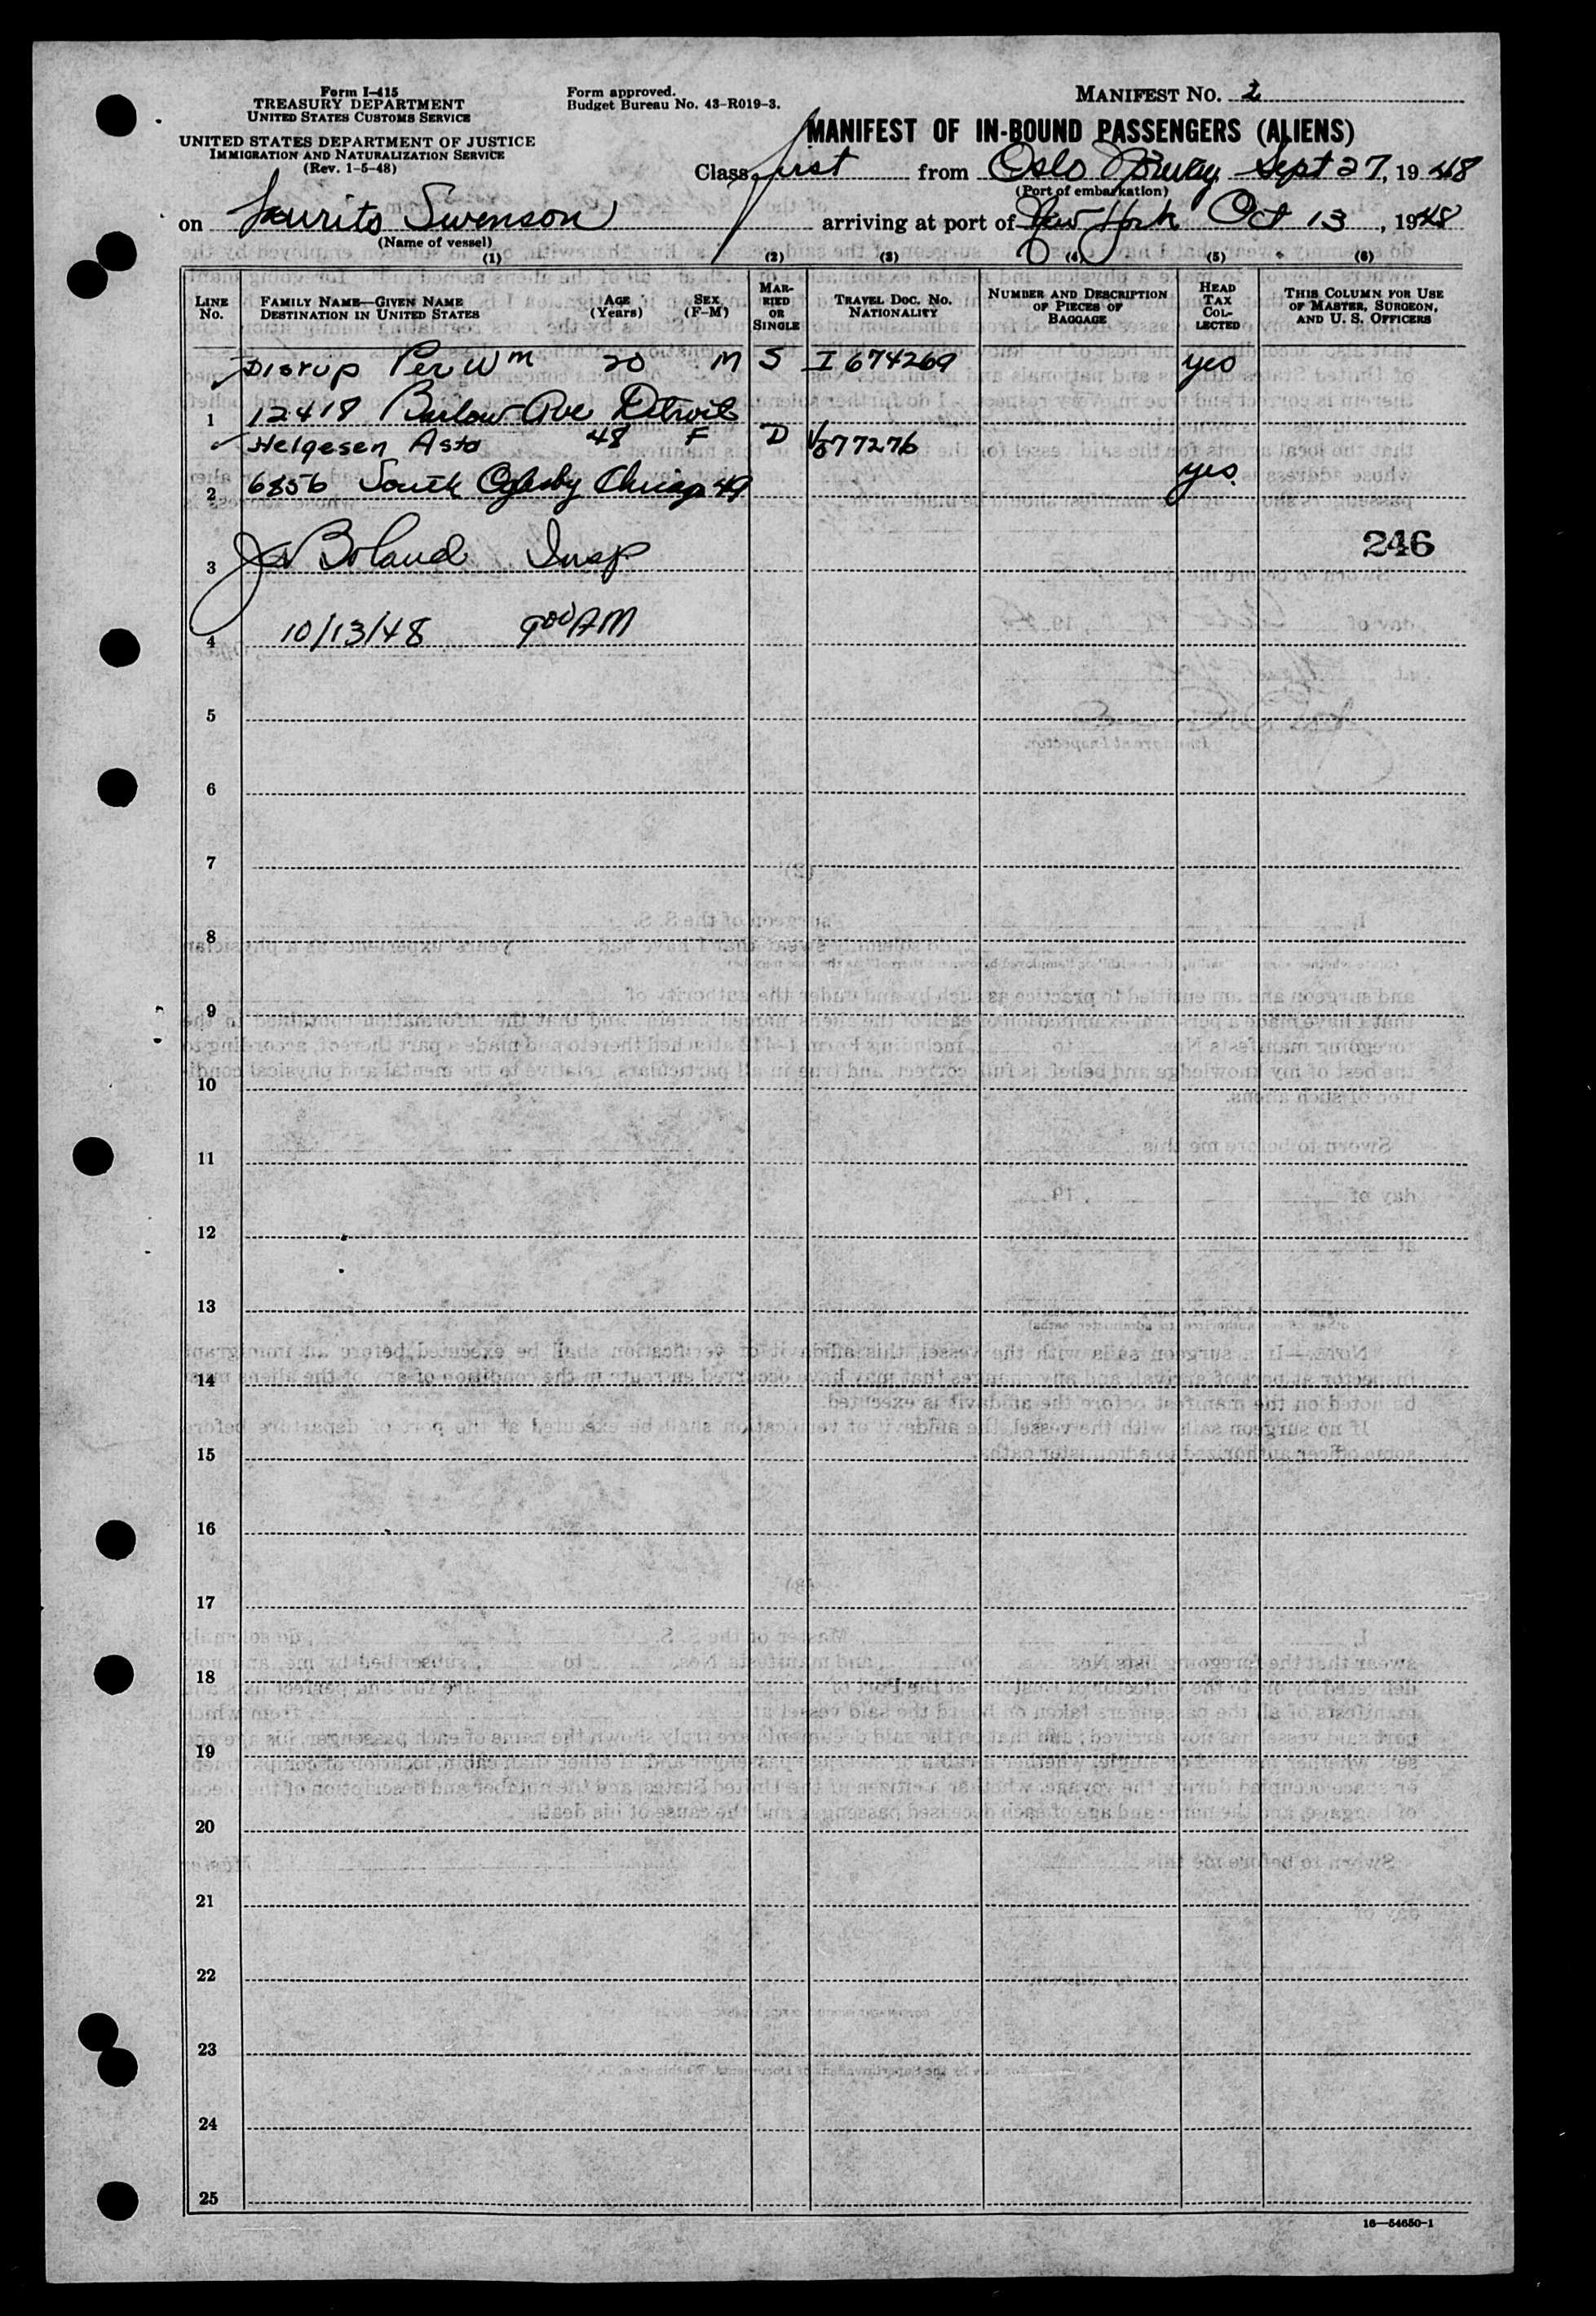 Form I-415
TREASURY DEPARTMENT
UNITED STATES CUSTOMS SERVICE
UNITED STATES DEPARTMENT OF JUSTICE
IMMIGRATION AND NATURALIZATION SERVICE
(Rev. 1-5-48)
Form approved.
Budget Bureau No. 43-R019-3.
MANIFEST NO. 2
MANIFEST OF IN-BOUND PASSENGERS (ALIENS)
Class first from Oslo Norway Sept 27, 1948
(Port of embarkation)
on Laurits Swenson arriving at port of New York Oct 13, 1948
(Name of vessel)
(1) (2) (3) (4) (5) (6)
LINE No. FAMILY NAME—GIVEN NAME DESTINATION IN UNITED STATES AGE (Years) SEX (F-M) MARRIED OR SINGLE TRAVEL DOC. NO. NATIONALITY NUMBER AND DESCRIPTION OF PIECES OF BAGGAGE HEAD TAX COLLECTED THIS COLUMN FOR USE OF MASTER, SURGEON, AND U. S. OFFICERS
Per Wm 20 M S I 674269 yes
1 12418 Ave Detroit
Helgesen Asta 48 F D 577276
2 6856 South Oglesby Chicago 49 yes
3 Boland Insp 246
4 10/13/48 9 00 AM
5
6
7
8
9
10
11
12
13
14
15
16
17
18
19
20
21
22
23
24
25
16—54650-1